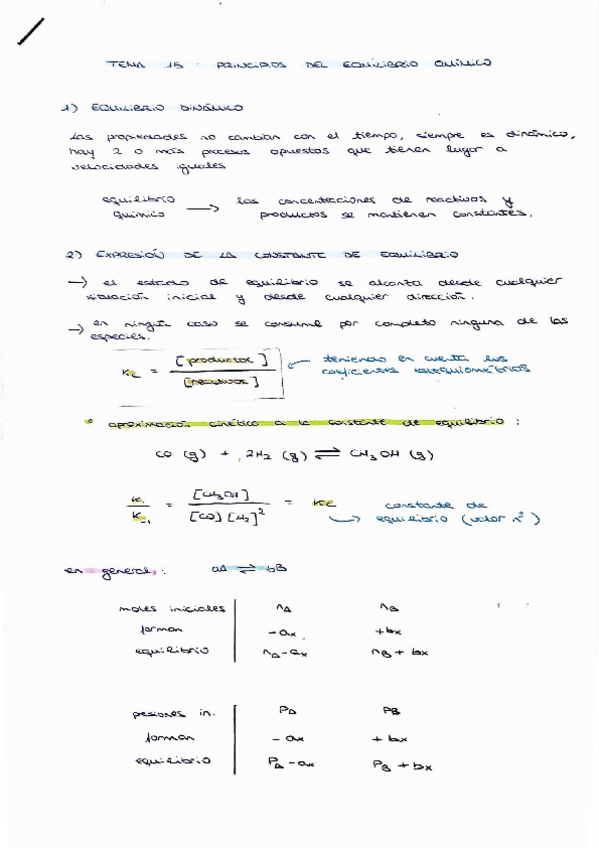 TEMA 15 : PRINCIPIOS DEL EQUILIBRIO QUÍMICO
1) EQUILIBRIO DINÁMICO
Las propiedades no cambian con el tiempo, siempre es dinámico,
hay 2 o más procesos opuestos que tienen lugar a
velocidades iguales
equilibrio químico → las concentraciones de reactivos y
productos se mantienen constantes.
2) EXPRESIÓN DE LA CONSTANTE DE EQUILIBRIO
→ el estado de equilibrio se alcanza desde cualquier
situación inicial y desde cualquier dirección.
→ en ningún caso se consume por completo ninguna de las
especies.
Kc = [productos] / [reactivos] ← teniendo en cuenta los
coeficientes estequiométricos
° aproximación cinético a la constante de equilibrio :
CO (g) + 2H₂ (g) ⇌ CH₃OH (g)
K₁ / K₋₁ = [CH₃OH] / [CO] [H₂]² = Kc → constante de
equilibrio (valor nº)
en general : aA ⇌ bB
moles iniciales | nA nB
forman | -ax +bx
equilibrio | nA-ax nB + bx
presiones in. | PA PB
forman | - ax + bx
equilibrio | PA - ax PB + bx